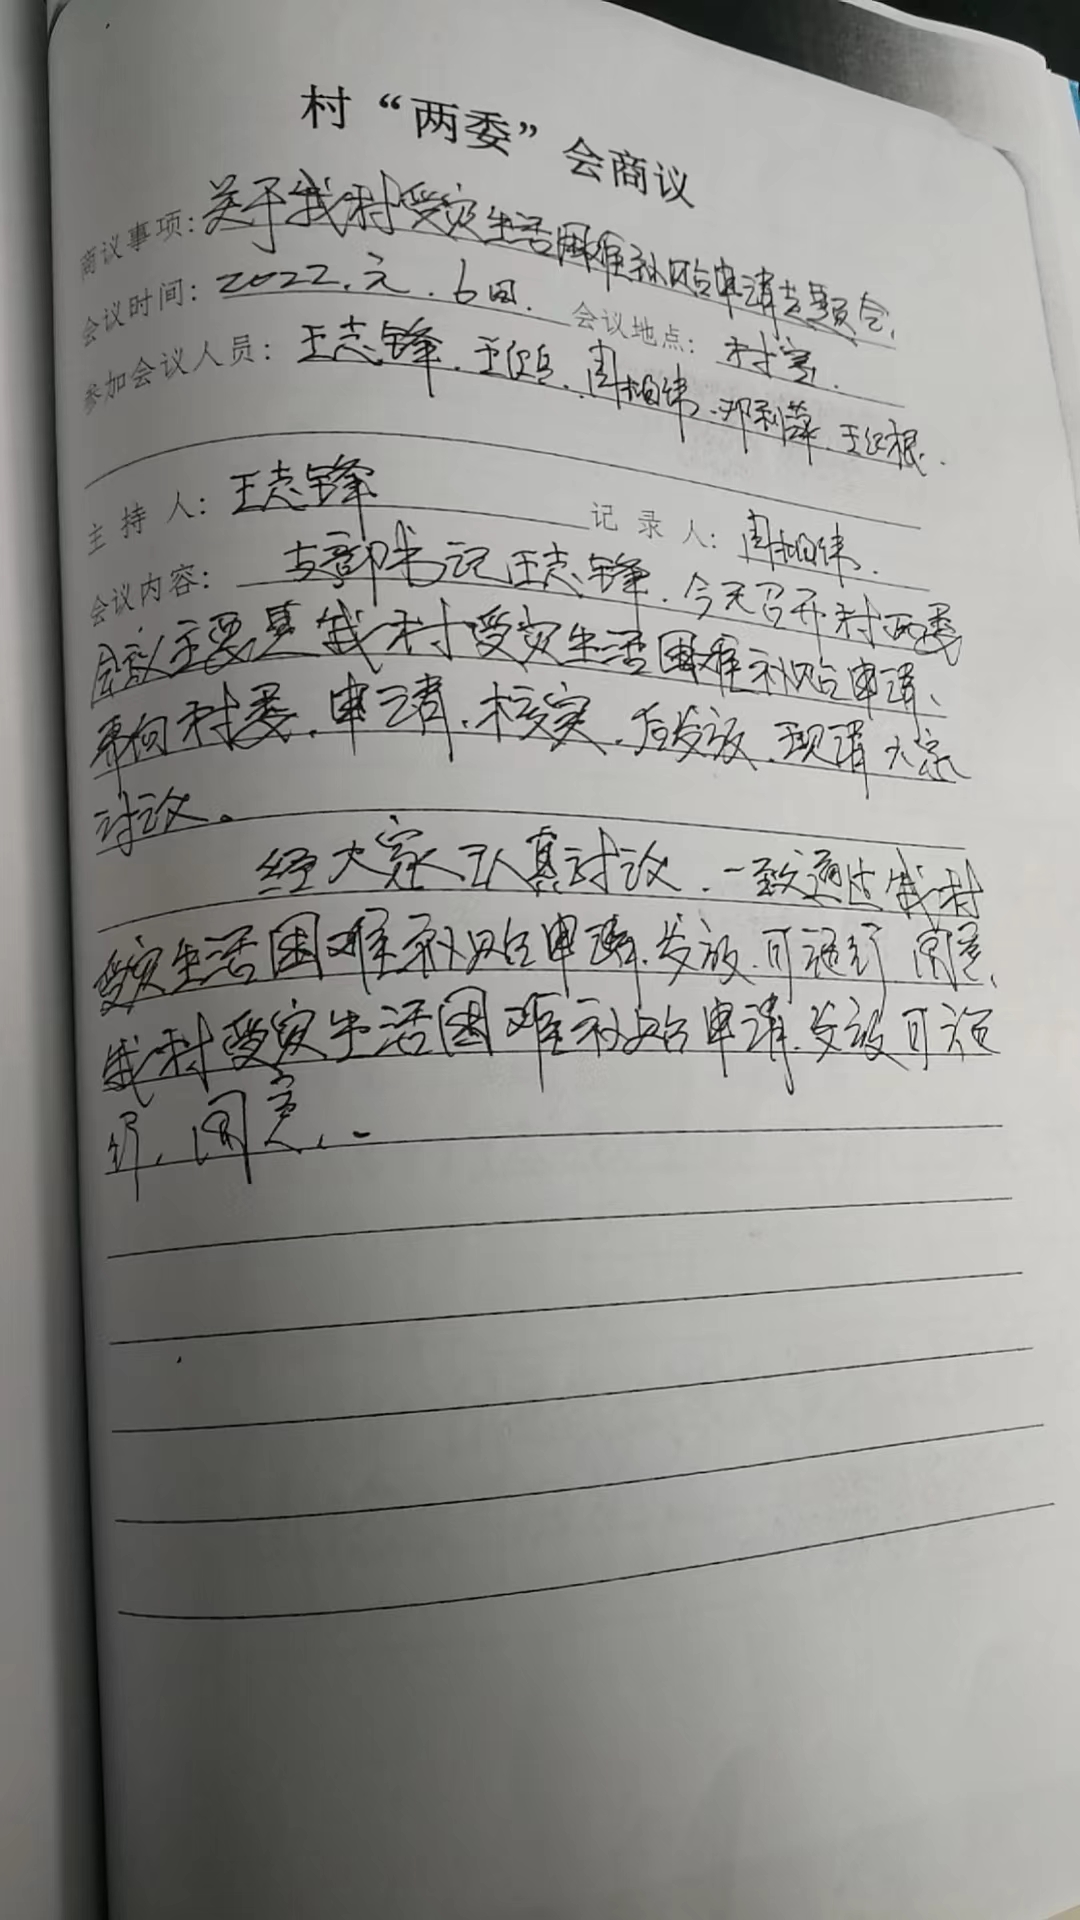 村“两委”会商议
商议事项：关于我村受灾生活困难补贴申请专题会.
会议时间：2022.元.6日. 会议地点：村室.
参加会议人员：王志锋.王红兵.周柏伟.邓利萍.王红根.
主持人：王志锋 记录人：周柏伟.
会议内容：支部书记王志锋.今天召开村两委
会议主要是我村受灾生活困难补贴申请、
来向村委.申请.核实.后发放.现请大家
讨议。
经大家认真讨议.一致通过我村
受灾生活困难补贴申请.发放.可施行 同意、
我村受灾生活困难补贴申请.发放可施
行.同意..